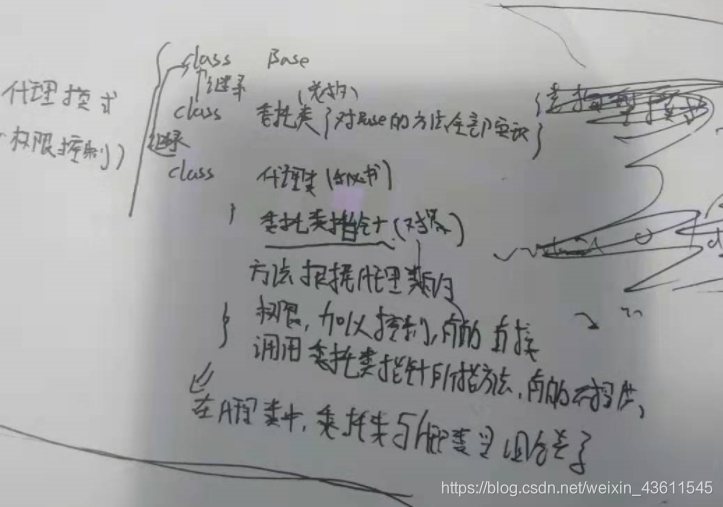 代理模式
(权限控制)
class Base
继承
class 委托类 {对Base的方法全部实现}
继承
class 代理类 (秘书)
{
委托类指针 (对象)
方法根据代理类的
权限,加以控制,有的直接
调用委托类指针所指方法,有的不提供,
}
在代理类中,委托类与代理类是组合关系
https://blog.csdn.net/weixin_43611545